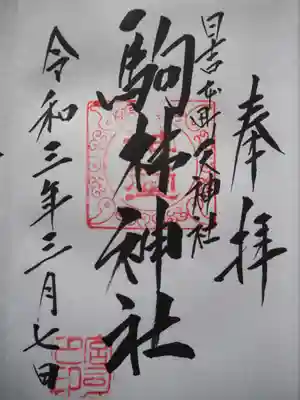 奉拝
日吉本町天神社
駒林神社
令和三年三月七日